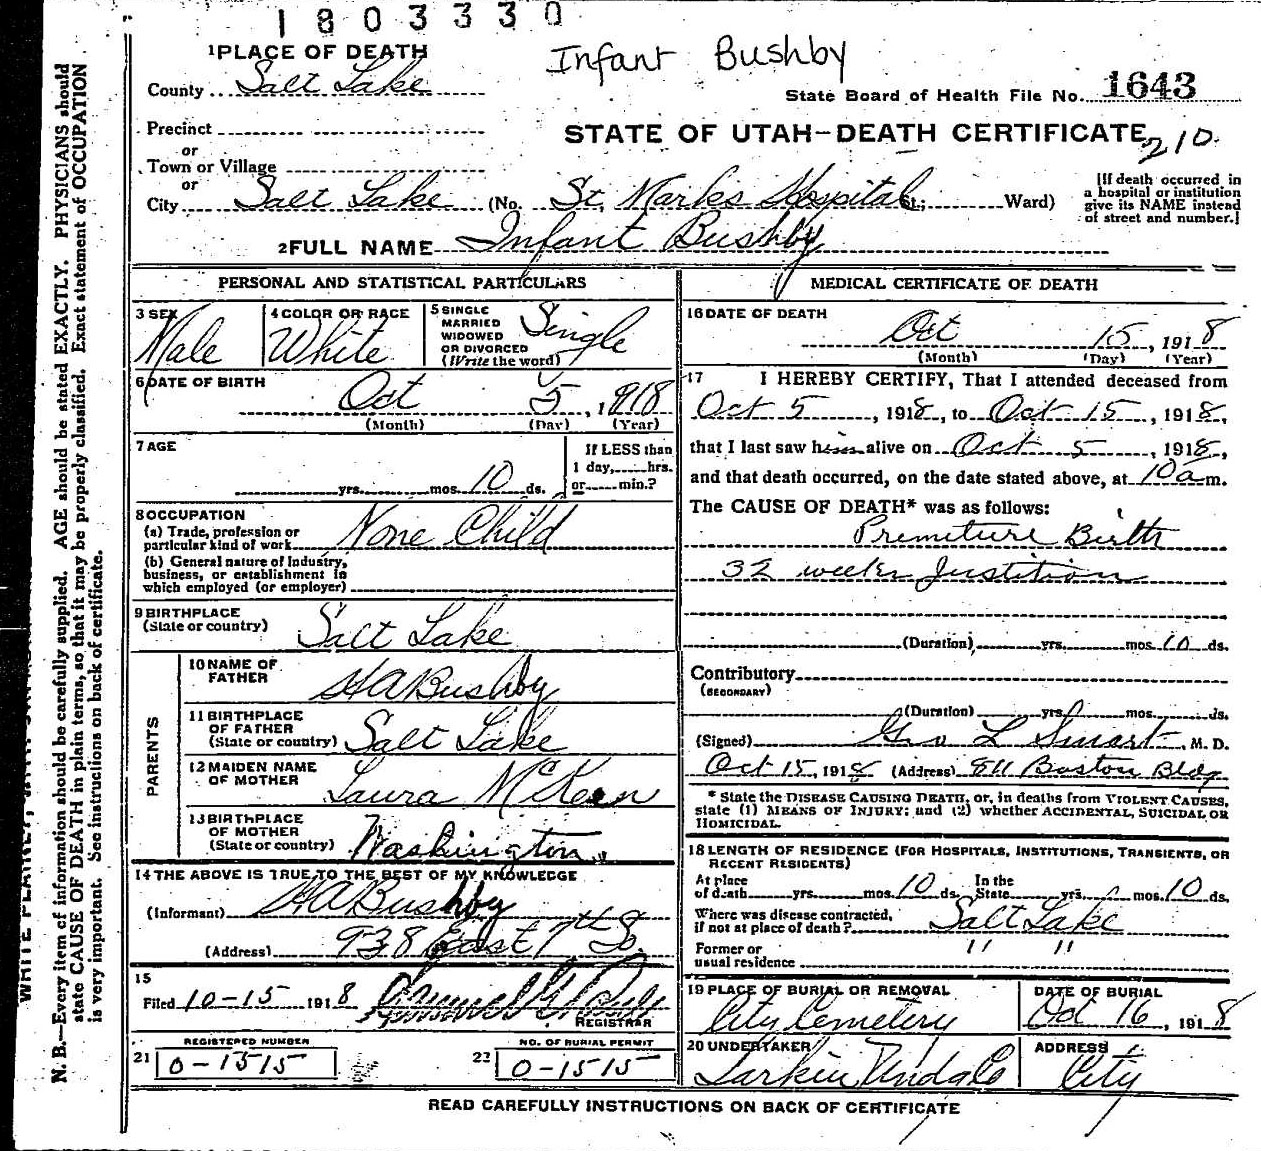 1803330
Infant Bushby
1 PLACE OF DEATH
County Salt Lake
State Board of Health File No. 1643
Precinct
STATE OF UTAH-DEATH CERTIFICATE
210.
or
Town or Village
or
City Salt Lake (No. St, Marks Hospital St.; Ward)
[If death occurred in a hospital or institution give its NAME instead of street and number.]
2 FULL NAME Infant Bushby
PERSONAL AND STATISTICAL PARTICULARS
3 SEX Male
4 COLOR OR RACE White
5 SINGLE MARRIED WIDOWED OR DIVORCED (Write the word) Single
6 DATE OF BIRTH Oct 5, 1918
(Month) (Day) (Year)
7 AGE
yrs. mos. 10 ds.
If LESS than 1 day, hrs. or min.?
8 OCCUPATION
(a) Trade, profession or particular kind of work None Child
(b) General nature of Industry, business, or establishment in which employed (or employer)
9 BIRTHPLACE (State or country) Salt Lake
PARENTS
10 NAME OF FATHER HA Bushby
11 BIRTHPLACE OF FATHER (State or country) Salt Lake
12 MAIDEN NAME OF MOTHER Laura McKeen
13 BIRTHPLACE OF MOTHER (State or country) Washington
14 THE ABOVE IS TRUE TO THE BEST OF MY KNOWLEDGE
(Informant) HA Bushby
(Address) 938 East 7th So.
15
Filed 10-15 1918
REGISTRAR
REGISTERED NUMBER
21 0-1515
NO. OF BURIAL PERMIT
22 0-1515
MEDICAL CERTIFICATE OF DEATH
16 DATE OF DEATH
Oct 15, 1918
(Month) (Day) (Year)
17 I HEREBY CERTIFY, That I attended deceased from
Oct 5, 1918, to Oct 15, 1918,
that I last saw him alive on Oct 5, 1918,
and that death occurred, on the date stated above, at 10a m.
The CAUSE OF DEATH* was as follows:
Premiture Birth
32 weeks Justition
(Duration) yrs. mos. 10 ds.
Contributory
(SECONDARY)
(Duration) yrs. mos. ds.
(Signed) Geo L Smart, M. D.
Oct 15, 1918 (Address) 811 Boston Bldg
* State the DISEASE CAUSING DEATH, or, in deaths from VIOLENT CAUSES,
state (1) MEANS OF INJURY; and (2) whether ACCIDENTAL, SUICIDAL OR
HOMICIDAL.
18 LENGTH OF RESIDENCE (FOR HOSPITALS, INSTITUTIONS, TRANSIENTS, OR
RECENT RESIDENTS)
At place of death yrs. mos. 10 ds. In the State yrs. mos. 10 ds.
Where was disease contracted, if not at place of death? Salt Lake
Former or usual residence " "
19 PLACE OF BURIAL OR REMOVAL
City Cemetery
DATE OF BURIAL
Oct 16, 1918
20 UNDERTAKER
Larkin Unda Co
ADDRESS
City
READ CAREFULLY INSTRUCTIONS ON BACK OF CERTIFICATE
N. B.—Every item of information should be carefully supplied. AGE should be stated EXACTLY. PHYSICIANS should
state CAUSE OF DEATH in plain terms, so that it may be properly classified. Exact statement of OCCUPATION
is very important. See instructions on back of certificate.